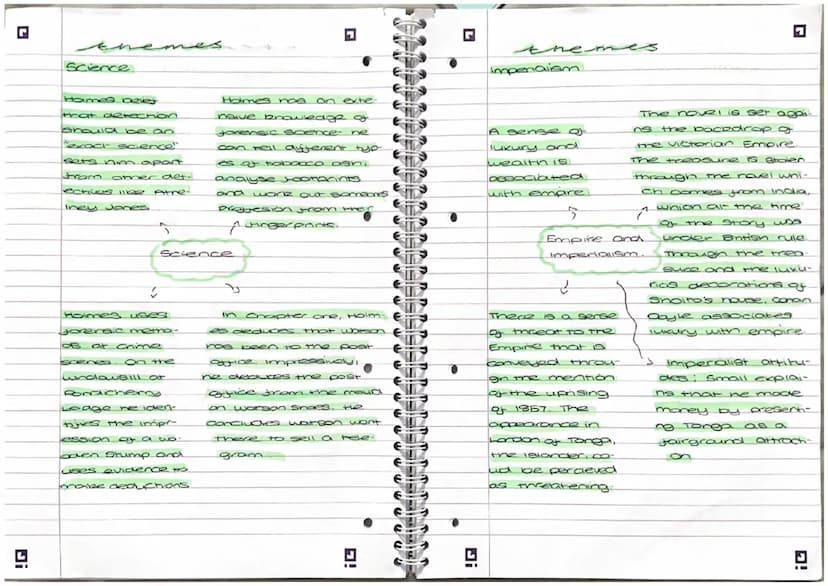 themes
Science
Holmes feels
that detection
should be an
'exact science'
sets him apart
from other det-
ectives like Athe-
lney Jones.
Holmes has an exte-
nsive knowledge of
forensic science- he
can tell different typ-
es of tobacco ash,
analyse footprints
and work out someons
proffesion from their
fingerprints.
Science
Holmes uses
forensic metho-
ds at crime
scenes. On the
windowsill at
Pondicherry
Lodge he iden-
tifies the impr-
ession of a wo-
oden stump and
uses evidence to
make deductions
In Chapter one, Holm-
es deduces that watson
has been to the post
office. Impressively,
he deduces the post
office from the mud
on watson shoes. He
concludes watson went
there to sell a tele-
gram
themes
Imperialism
A sense of
luxury and
wealth is
associated
with empire.
The novel is set agai-
ns the backdrop of
the Victorian Empire.
The treasure is stolen
through the novel whi-
ch comes from India,
which at the time
of the story was
under British rule.
Through the trea-
sure and the luxu-
rios decorations of
Sholto's house, conan
Doyle associates
luxury with empire.
Empire and
Imperialism.
There is a sense
of threat to the
Empire that is
conveyed throu-
gh the mention
of the uprising
of 1857. The
appearance in
London of Tonga,
the islander, co-
uld be percieved
as threatening.
Imperialist attitu-
des: Small explai-
ns that he made
money by presenti-
ng Tonga as a
fairground attracti-
on